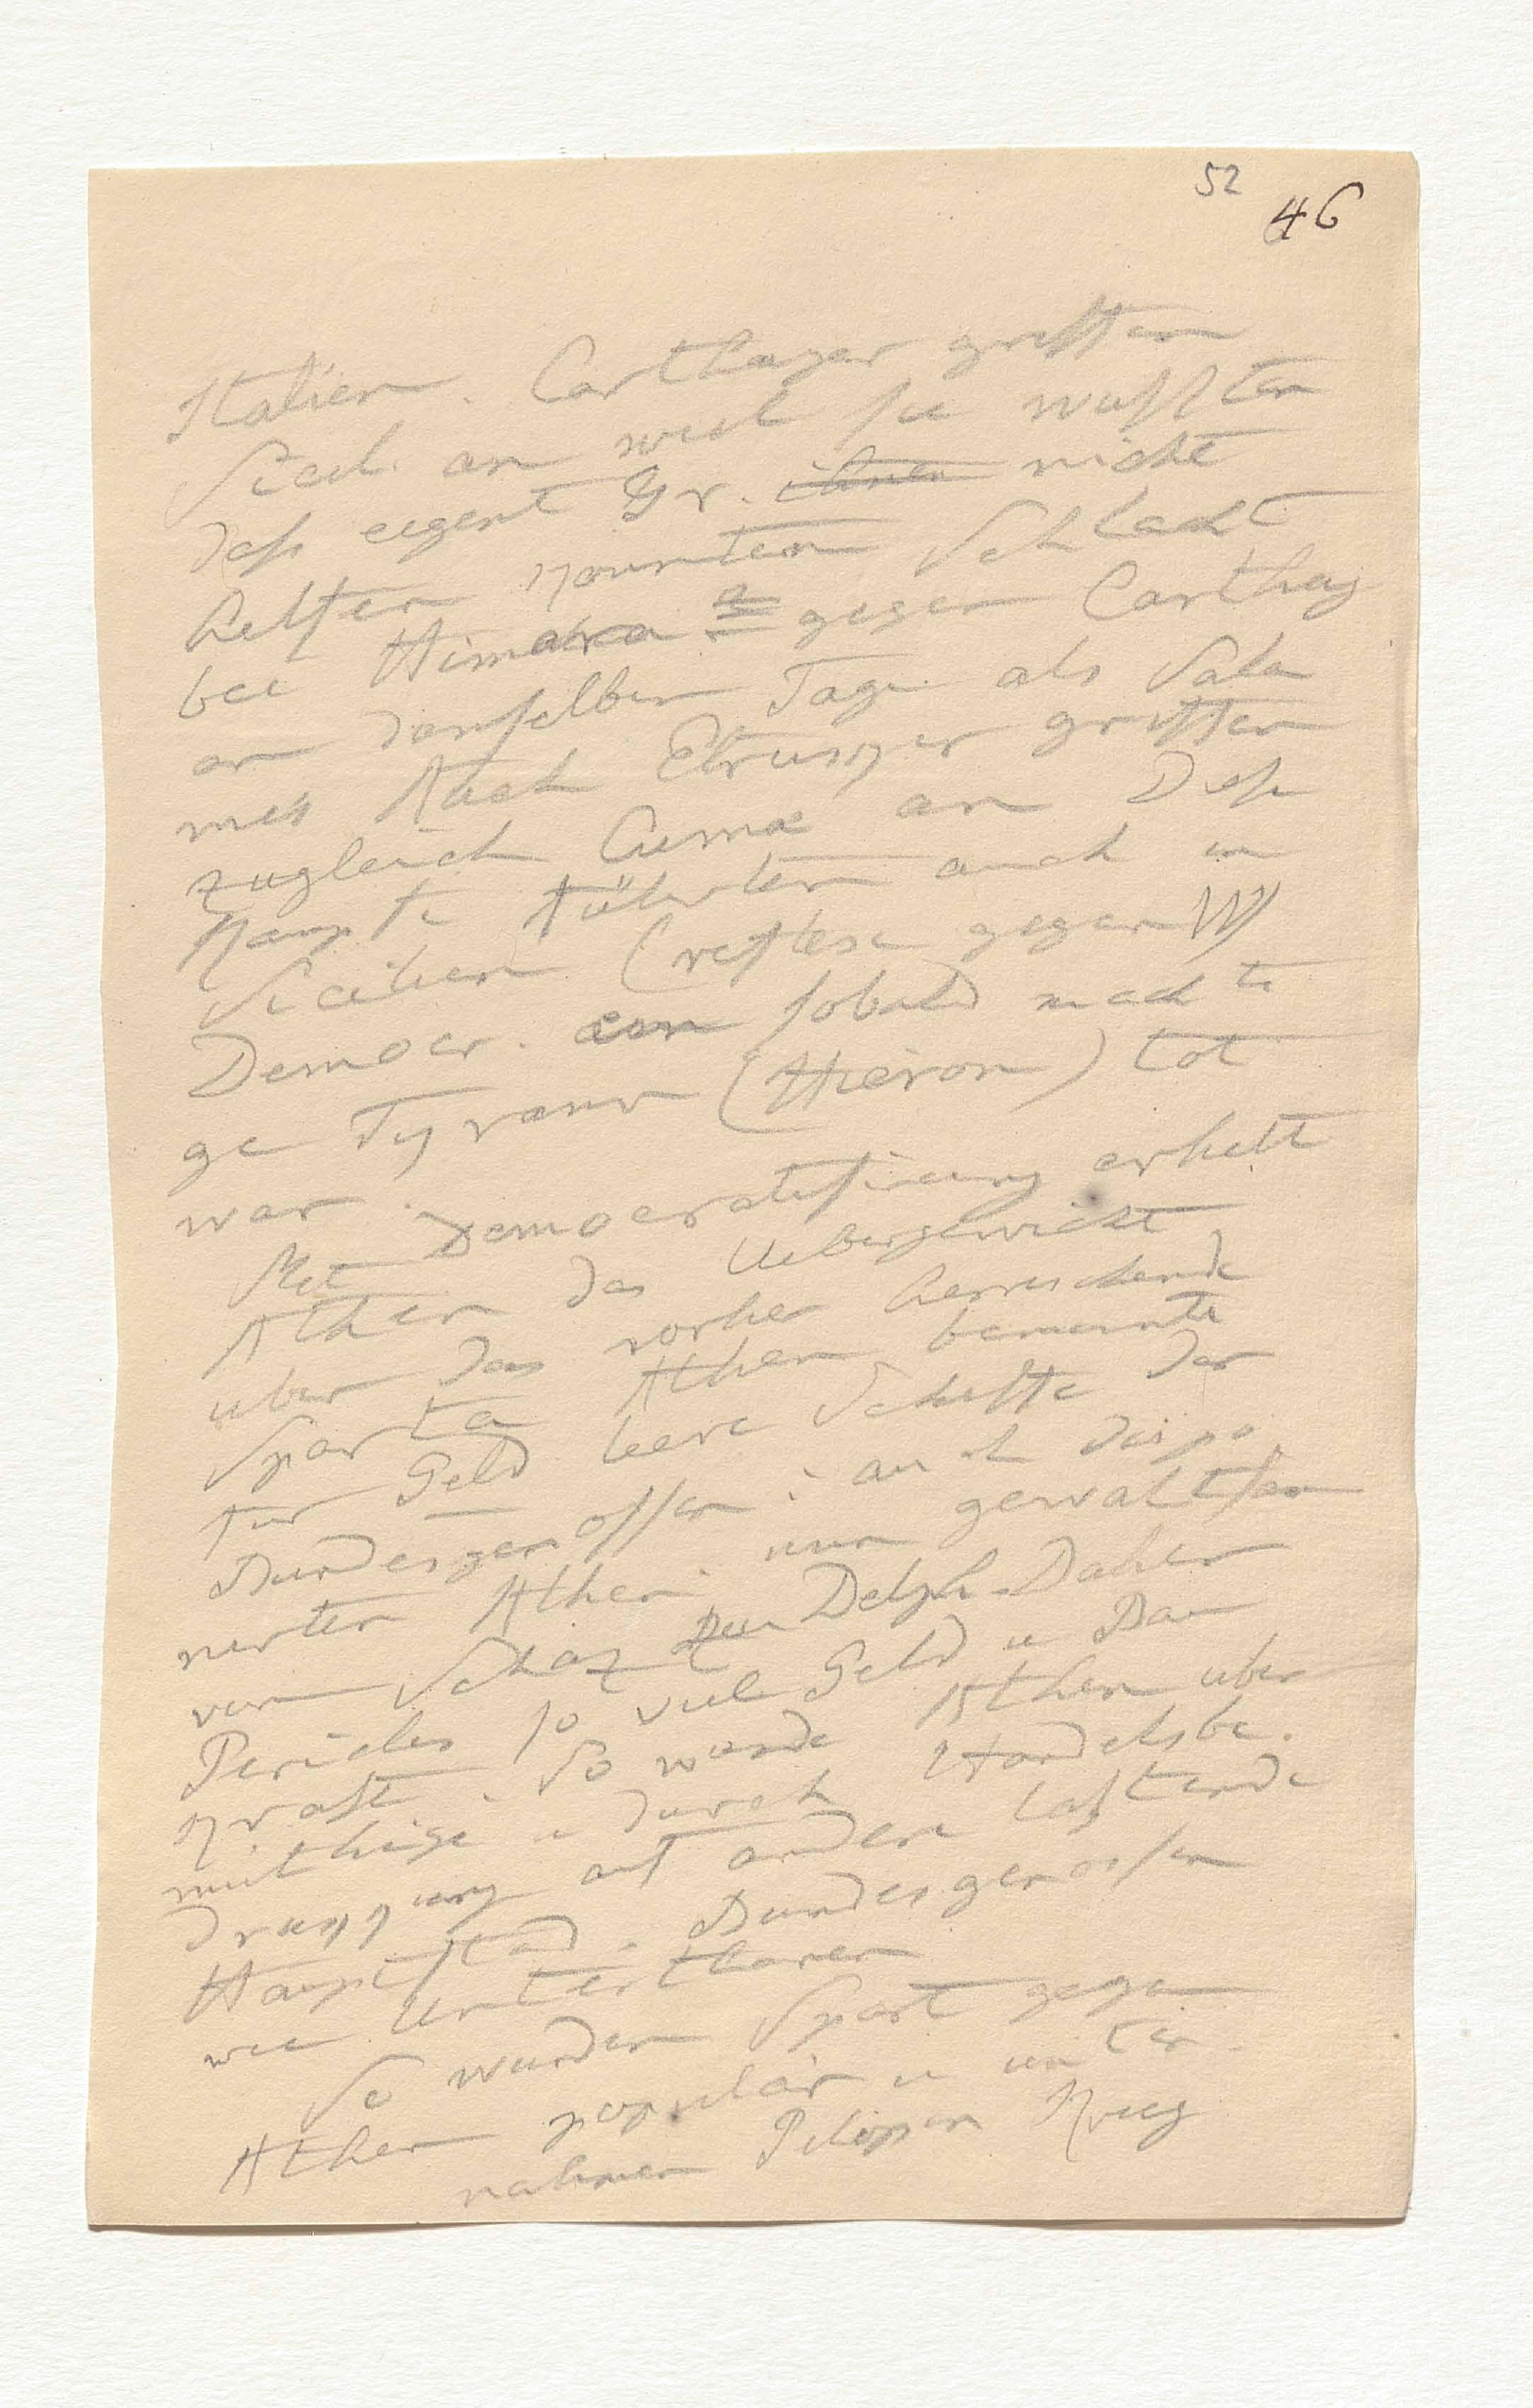 52
46
Italien. Carthager griffen
Sicil. an weil sie wußten
daß eigent Gr. ihnen nicht
helfen konnten Schlacht
bei Himera gegen Carthag
an demselben Tage als Sala
mis Auch Etrusker griffen
zugleich Cumae an Dieß
Kämpfe führten auch in
Sicilien
Democr. ein sobald mächti
ge Tyrann (Hieron) tot
war.
Mit Democratisirung erhält
Athen das Uebergewicht
uber das vorher herrschende
Sparta Athen bemannte
fur Geld leere Schiffe der
Bundesgenossen; auch dispo
nirten Athen. nun gewaltsam
von Schaz zu Delph. Daher
Pericles so viel Geld u Bau
kraft. So wurde Athen uber
müthige u durch Handelsbe.
druckung auf andere lastende
Hauptstad. Bundesgenossen
wie Unterthanen
So wurden Spart gegen
Athen populär u unter
nahmen Pelopon Krieg